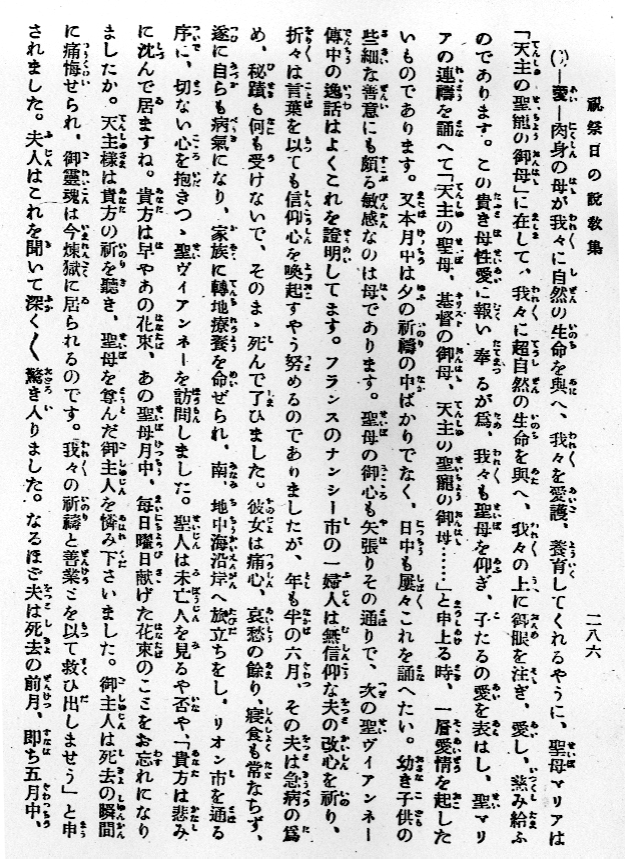 祝祭日の說敎集
二八六
(ハ)—愛—肉身の母が我々に自然の生命を與へ、我々を愛護、養育してくれるやうに、聖母マリアは
「天主の聖寵の御母」に在して、我々に超自然の生命を與へ、我々の上に御眼を注ぎ、愛し、慈み給ふ
のであります。この貴き母性愛に報い奉るが爲、我々も聖母を仰ぎ、子たるの愛を表はし、聖マリ
アの連禱を誦へて「天主の聖母、基督の御母、天主の聖寵の御母……」と申上る時、一層愛情を起した
いものであります。又本月中は夕の祈禱の中ばかりでなく、日中も屢々これを誦へたい。幼き子供の
些細な善意にも頗る敏感なのは母であります。聖母の御心も矢張りその通りで、次の聖ヴィアンネー
傳中の逸話はよくこれを證明してます。フランスのナンシー市の一婦人は無信仰な夫の改心を祈り、
折々は言葉を以ても信仰心を喚起すやう努めるのでありましたが、年も半の六月、その夫は急病の爲
め、秘蹟も何も受けないで、そのまゝ死んで了ひました。彼女は痛心、哀愁の餘り、寢食も常ならず、
遂に自らも病氣になり、家族に轉地療養を命ぜられ、南、地中海沿岸へ旅立ちをし、リオン市を通る
序に、切ない心を抱きつゝ聖ヴィアンネーを訪問しました。聖人は未亡人を見るや否や、「貴方は悲み
に沈んで居ますね。貴方は早やあの花束、あの聖母月中、每日曜日献げた花束のことをお忘れになり
ましたか。天主樣は貴方の祈を聽き、聖母を尊んだ御主人を憐み下さいました。御主人は死去の瞬間
に痛悔せられ、御靈魂は今煉獄に居られるのです。我々の祈禱と善業とを以て救ひ出しませう」と申
されました。夫人はこれを聞いて深く〱驚き入りました。なるほど夫は死去の前月、卽ち五月中、